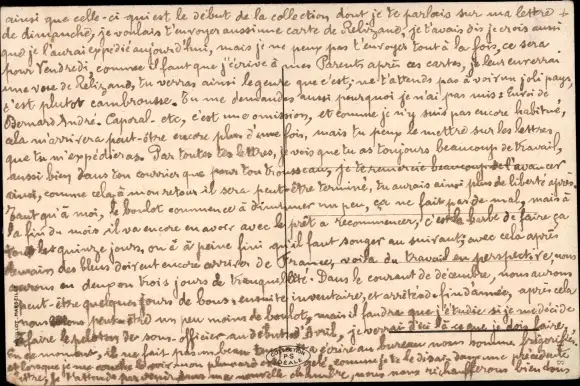 ainsi que celle-ci qui est le début de la collection dont je te parlais sur ma lettre
de dimanche, je voulais t'envoyer aussi une carte de Relizand, je t'avais dis je crois aussi
que je l'aurai expédié aujourd'hui, mais je ne peux pas t'envoyer tout à la fois, ce sera
pour Vendredi, comme il faut que j'écrive à mes Parents après ces cartes, je leur enverrai
une vue de Relizand, tu verras ainsi le genre que c'est, ne t'attends pas à voir un joli pays,
c'est plutot cambrousse. Tu me demandes aussi pourquoi je n'ai pas mis: Envoi de,
Bernard André. Caporal. etc, c'est une omission, et comme je n'y suis pas encore habitué,
cela m'arrivera peut-être encore plus d'une fois, mais tu peux le mettre sur les lettres
que tu m'expédieras. Par toutes tes lettres, je vois que tu as toujours beaucoup de travail,
aussi bien dans ton courrier que pour ton trousseau, je te remercie beaucoup de l'avancer
ainsi, comme cela à mon retour il sera peut-être terminé, tu aurais ainsi plus de liberté après.
Tant qu'à moi, le boulot commence à diminuer un peu, ça ne fait pas de mal, mais à
la fin du mois il va encore en avoir avec le prêt à recommencer, c'est la barbe de faire ça
tous les quinze jours, on a à peine fini qu'il faut songer au suivant, avec cela après
des bleus doivent encore arriver de France, voila du travail en perspective, nous
aurons en deux ou trois jours de tranquillité. Dans le courant de décembre, nous aurons
peut-être quelques jours de bons, ensuite inventaire, et arrêtés de fin d'année, après cela
nous peut-être un peu moins de boulot, mais il faudra que j'étudie si je me décide
à faire le peloton des sous-officier au début d'Avril, je verrai d'ici là ce que je dois faire.
En ce moment, il ne fait pas un beau temps écrire au bureau nous somme frigorifiés
lorsque je me mon comme je te le disais dans une précédente
lettre, dans ma nouvelle chambre, nous nous réchaufferons bien dans